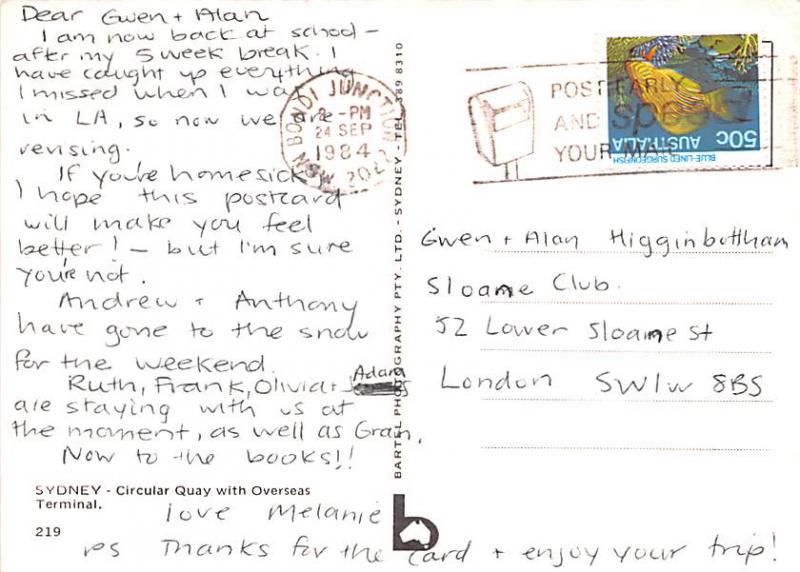 Dear Gwen + Alan
I am now back at school -
after my 5 week break. I
have caught up everything
I missed when I was
in LA, so now we are
revising.
If you're homesick
I hope this postcard
will make you feel
better! - but I'm sure
you're not.
Andrew + Anthony
have gone to the snow
for the weekend.
Ruth, Frank, Olivia + Adam
are staying with us at
the moment, as well as Gran.
Now to the books!!
love Melanie
ps Thanks for the card + enjoy your trip!
SYDNEY - Circular Quay with Overseas
Terminal.
219
BARTEL PHOTOGRAPHY PTY. LTD. - SYDNEY - TEL. 389 8310
b
BONDI JUNCTION
2 - PM
24 SEP
1984
N.S.W. 2022
POST EARLY
AND speed
YOUR MAIL
50c
AUSTRALIA
BLUE-LINED SURGEONFISH
Gwen + Alan Higginbottham
Sloame Club.
52 Lower Sloame st
London SW1W 8BS